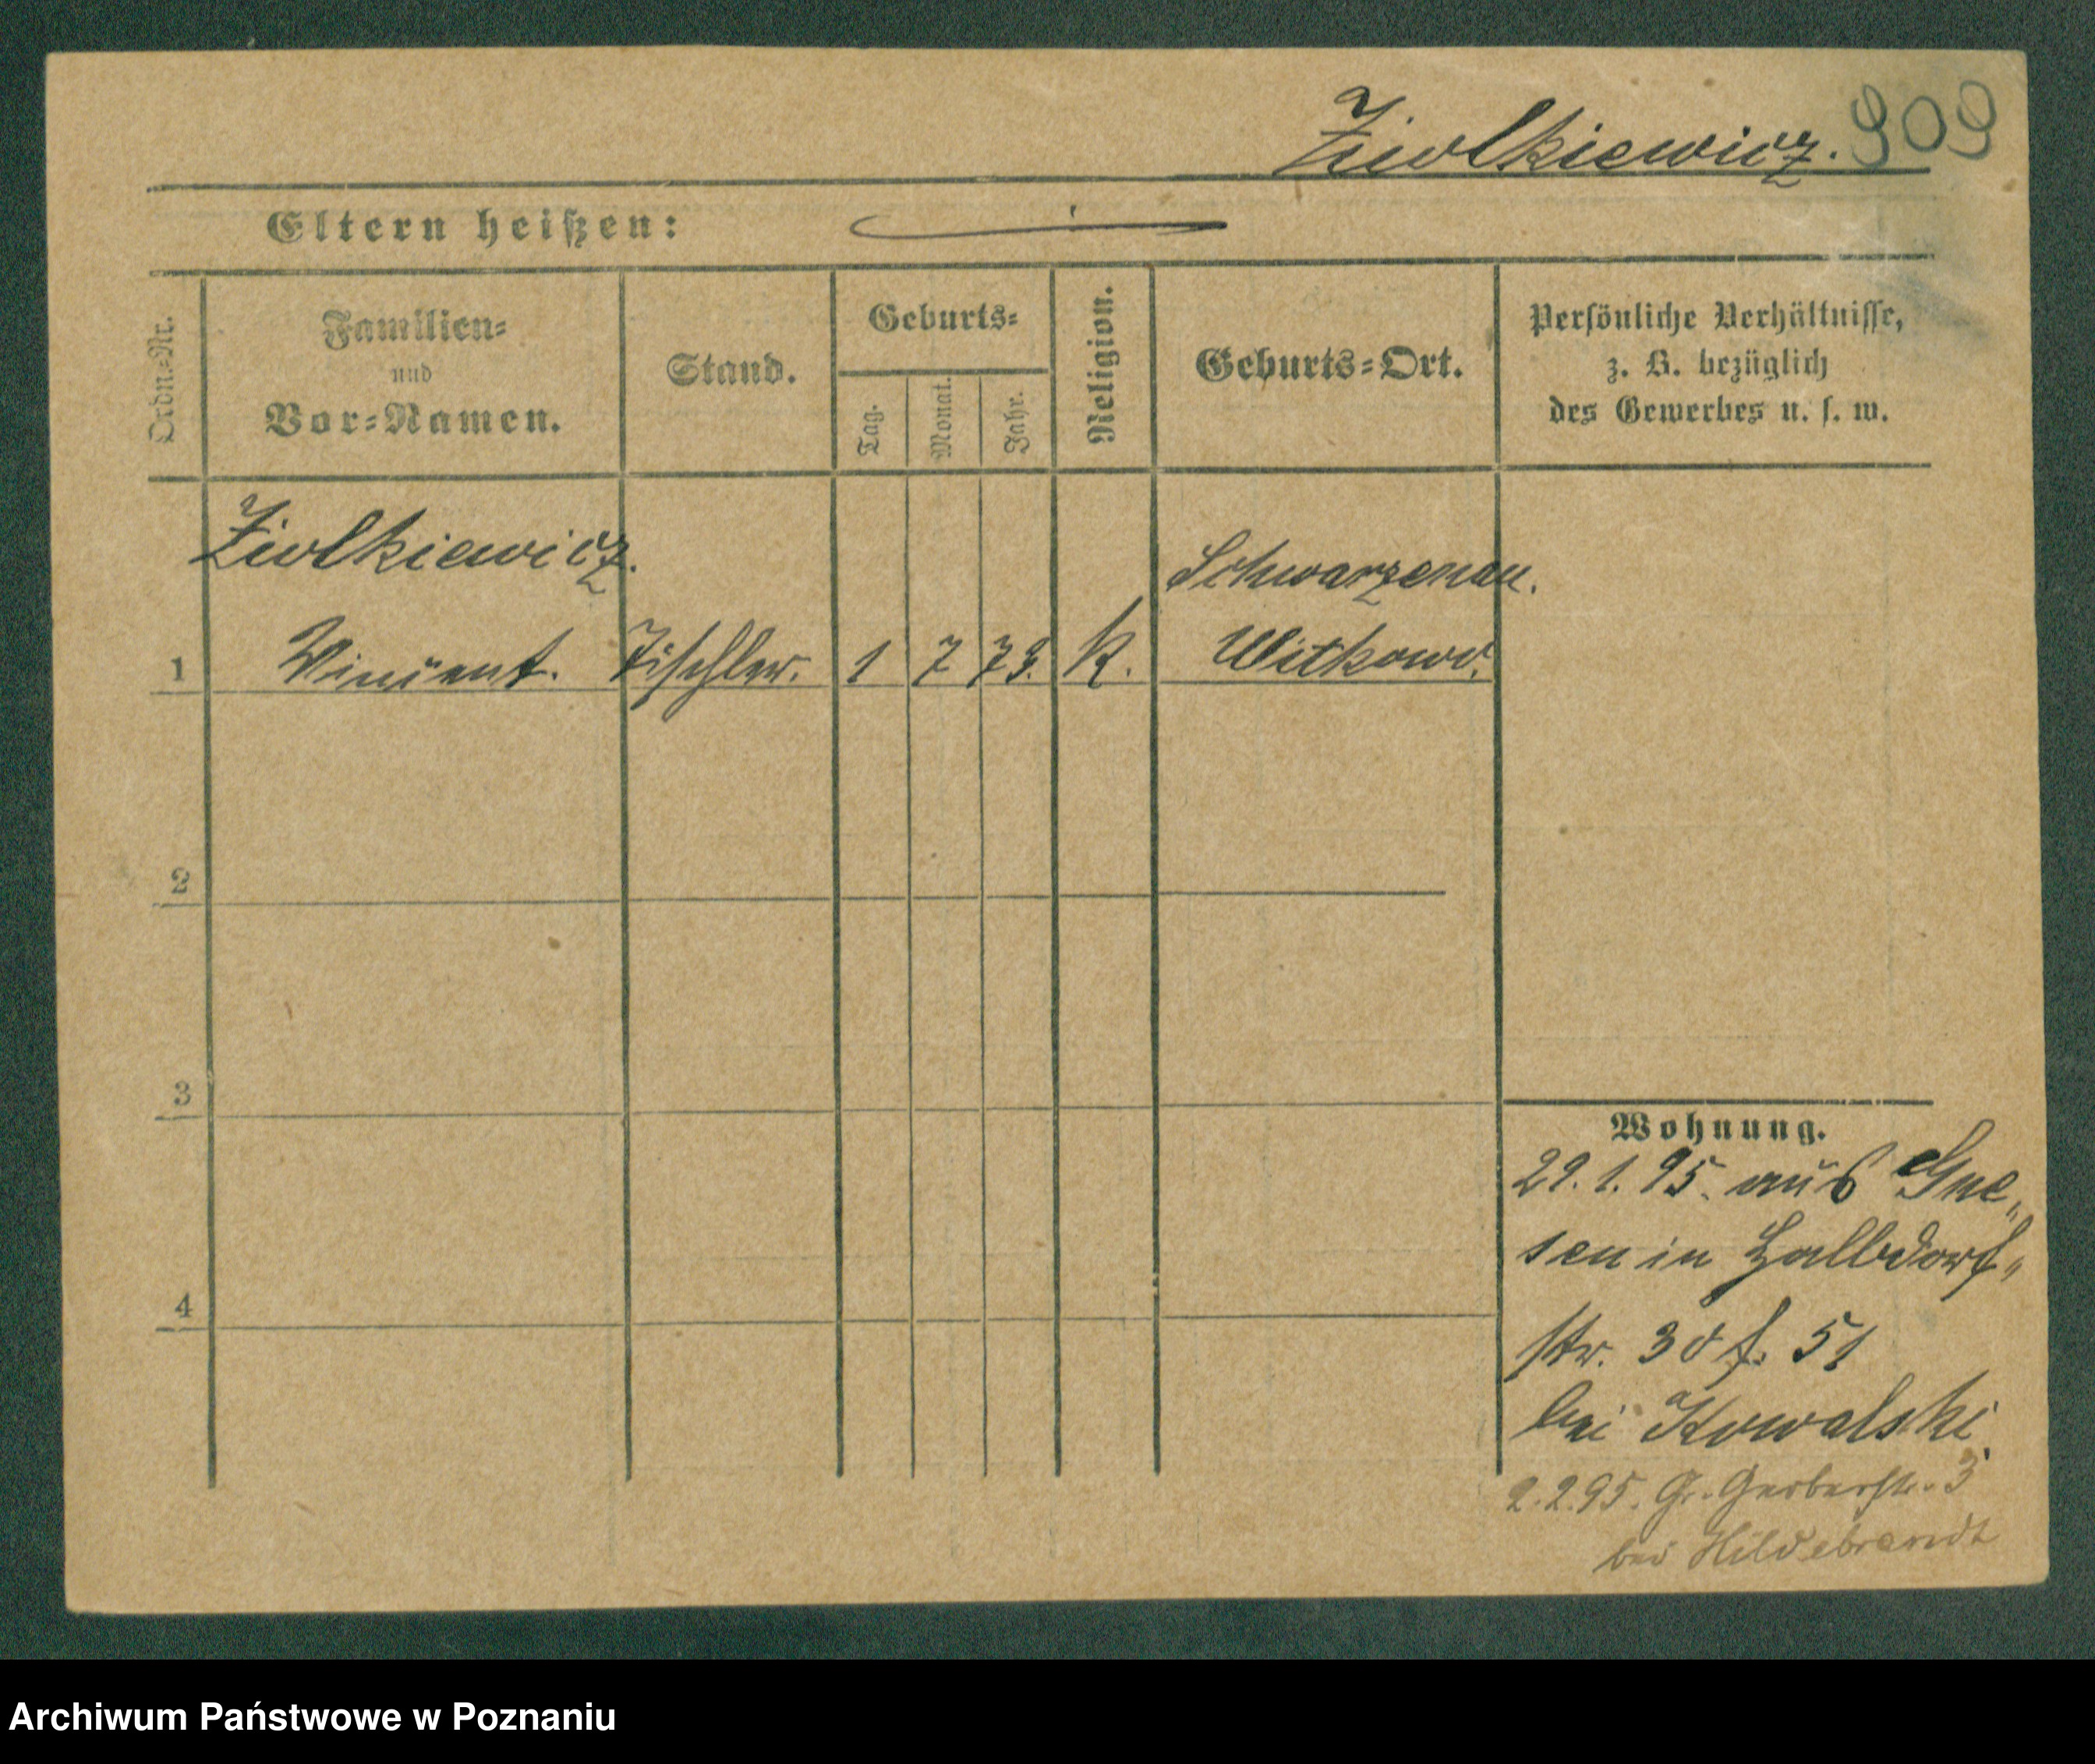 Ziolkiewicz. 909
Eltern heißen:
Ordn.-Nr.
Familien-
und
Vor-Namen.
Stand.
Geburts-
Tag.
Monat.
Jahr.
Religion.
Geburts-Ort.
Persönliche Verhältnisse,
z. B. bezüglich
des Gewerbes u. s. w.
Ziolkiewicz.
Schwarzenau.
1 Vincent. Tischler. 1 7 73. K. Witkowo.
2
3
4
Wohnung.
29.1.95. aus Gne„
sen in Halbdorf„
str. 30 f. 51
bei Kowalski.
2.2.95. Gr. Gerberstr. 3
bei Hildebrandt
Archiwum Państwowe w Poznaniu